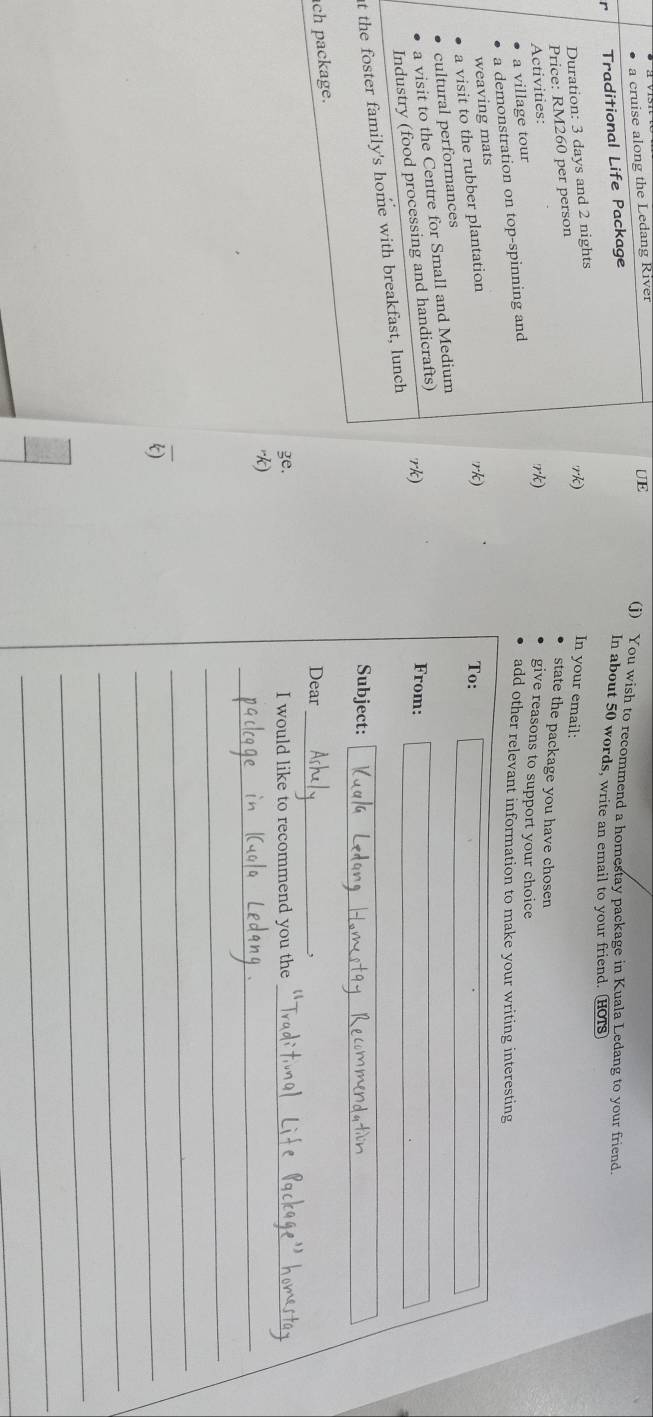 a cruise along the Ledang River
Traditional Life Package
Duration: 3 days and 2 nights
Price: RM260 per person
Activities:
• a village tour
• a demonstration on top-spinning and
weaving mats
• a visit to the rubber plantation
• cultural performances
• a visit to the Centre for Small and Medium
Industry (food processing and handicrafts)
the foster family's home with breakfast, lunch
package.
UE
(j) You wish to recommend a homestay package in Kuala Ledang to your friend.
In about 50 words, write an email to your friend. HOTS
In your email:
• state the package you have chosen
• give reasons to support your choice
• add other relevant information to make your writing interesting
To:
From:
Subject: Kuala Ledang Homestay Recommendation
Dear Ashely,
I would like to recommend you the "Traditional Life Package" homestay
package in Kuala Ledang.